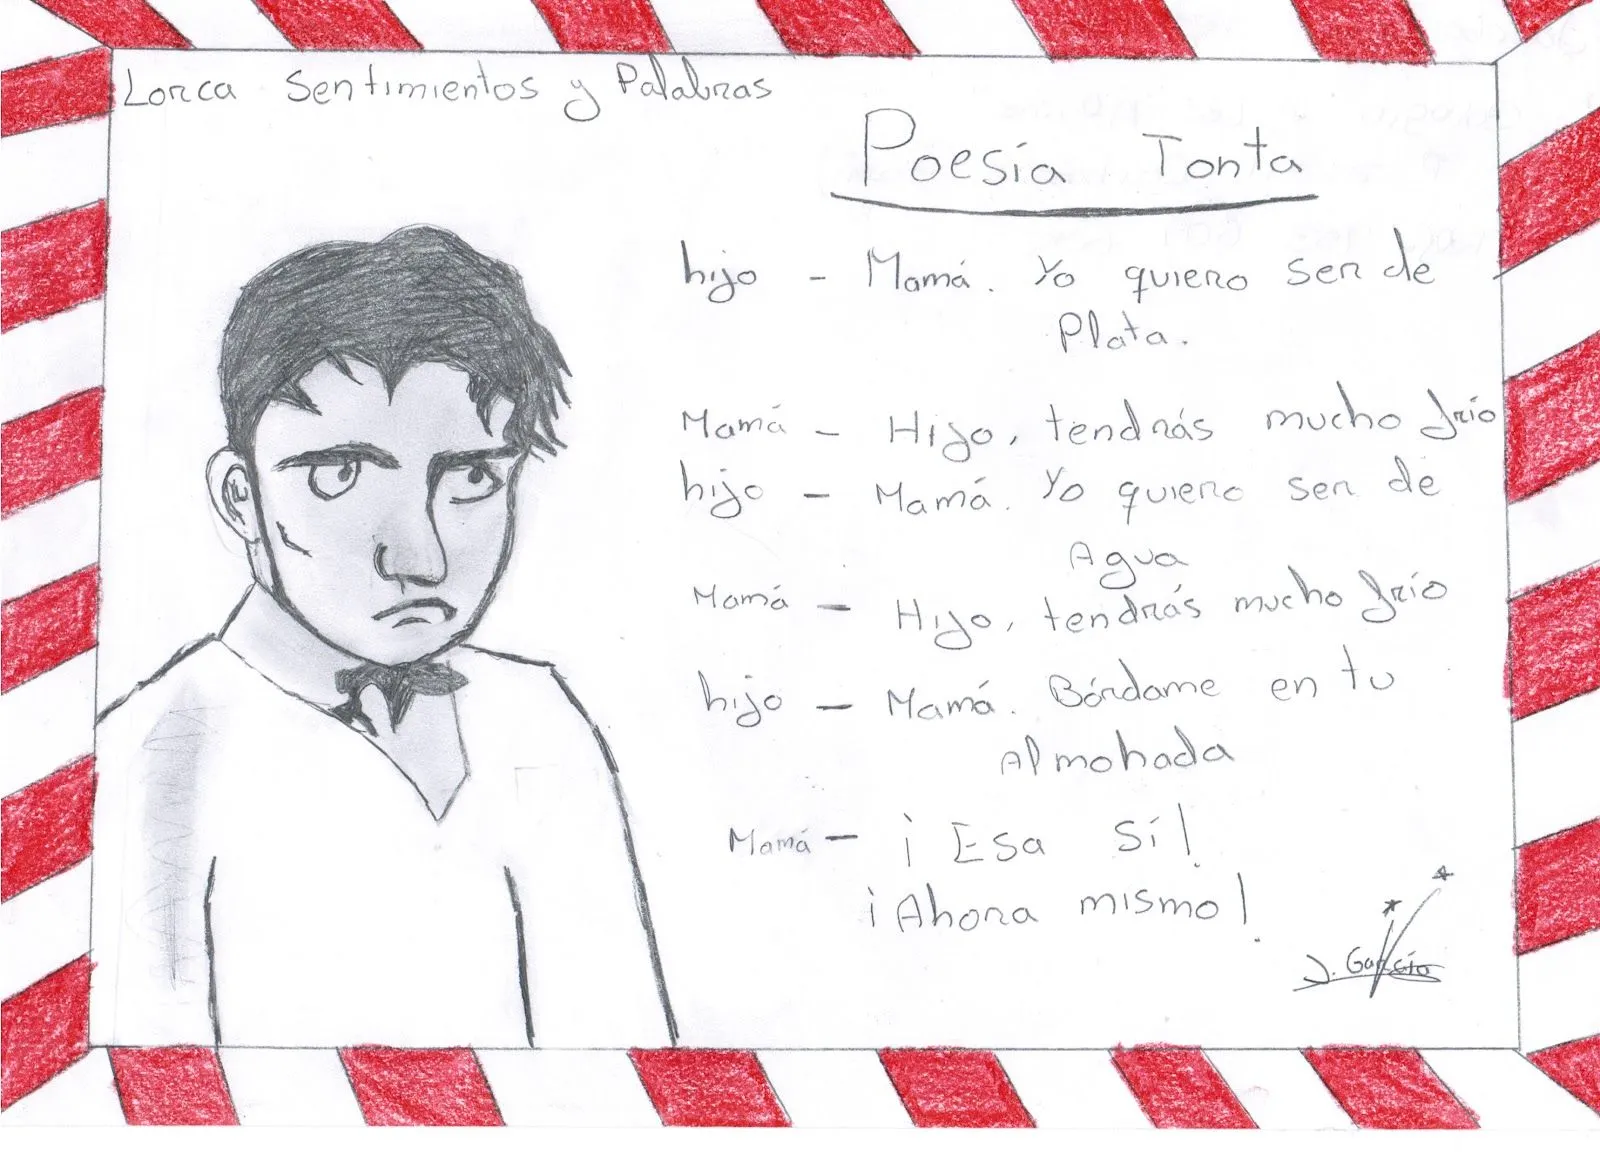 Lorca Sentimientos y Palabras
Poesía Tonta
hijo - Mamá. Yo quiero ser de
Plata.
Mamá - Hijo, tendrás mucho frío
hijo - Mamá. Yo quiero ser de
Agua
Mamá - Hijo, tendrás mucho frío
hijo - Mamá. Bórdame en tu
Almohada
Mamá - ¡Esa Sí!
¡Ahora mismo!
J. García